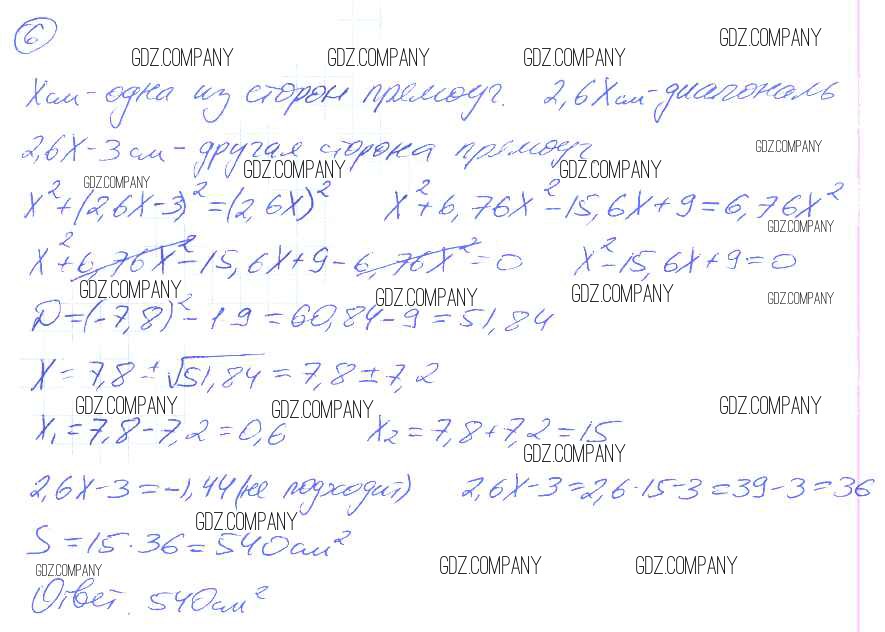 6
GDZ.COMPANY GDZ.COMPANY GDZ.COMPANY GDZ.COMPANY
Xсм - одна из сторон прямоуг. 2,6Xсм - диагональ
2,6X - 3 см - другая сторона прямоуг
GDZ.COMPANY GDZ.COMPANY GDZ.COMPANY GDZ.COMPANY
X² + (2,6X - 3)² = (2,6X)² X² + 6,76X² - 15,6X + 9 = 6,76X²
GDZ.COMPANY
X² + 6,76X² - 15,6X + 9 - 6,76X² = 0 X² - 15,6X + 9 = 0
GDZ.COMPANY GDZ.COMPANY GDZ.COMPANY GDZ.COMPANY
D = (-7,8)² - 1·9 = 60,84 - 9 = 51,84
X = 7,8 ± √51,84 = 7,8 ± 7,2
GDZ.COMPANY GDZ.COMPANY GDZ.COMPANY
X₁ = 7,8 - 7,2 = 0,6 X₂ = 7,8 + 7,2 = 15
GDZ.COMPANY
2,6X - 3 = -1,44 (не подходит) 2,6X - 3 = 2,6·15 - 3 = 39 - 3 = 36
GDZ.COMPANY
S = 15·36 = 540 см²
GDZ.COMPANY GDZ.COMPANY GDZ.COMPANY
Ответ. 540 см²